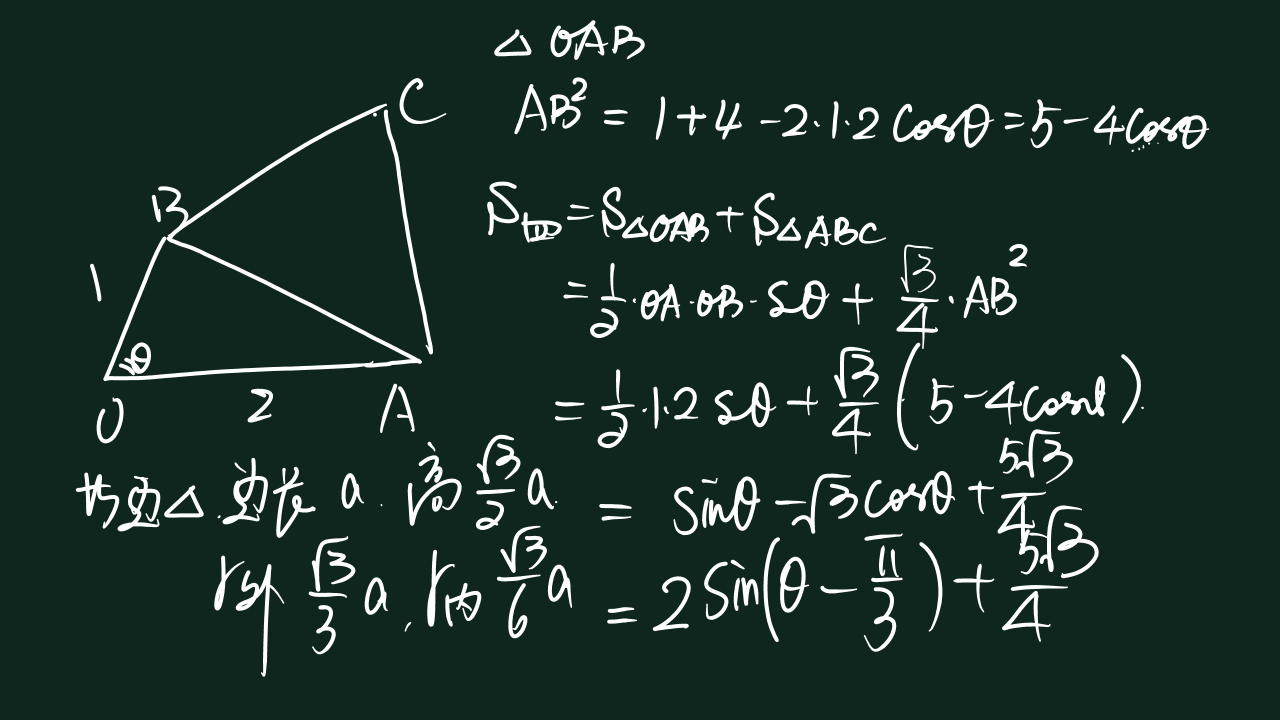 △OAB
AB² = 1+4-2·1·2cosθ = 5-4cosθ
S四 = S△OAB + S△ABC
= 1/2·OA·OB·Sθ + √3/4·AB²
= 1/2·1·2 Sθ + √3/4(5-4cosθ).
= sinθ - √3cosθ + 5√3/4
= 2sin(θ - π/3) + 5√3/4
C
B
1
θ
O
2
A
等边△.边长 a.高 √3/2 a.
r外 √3/3 a, r内 √3/6 a